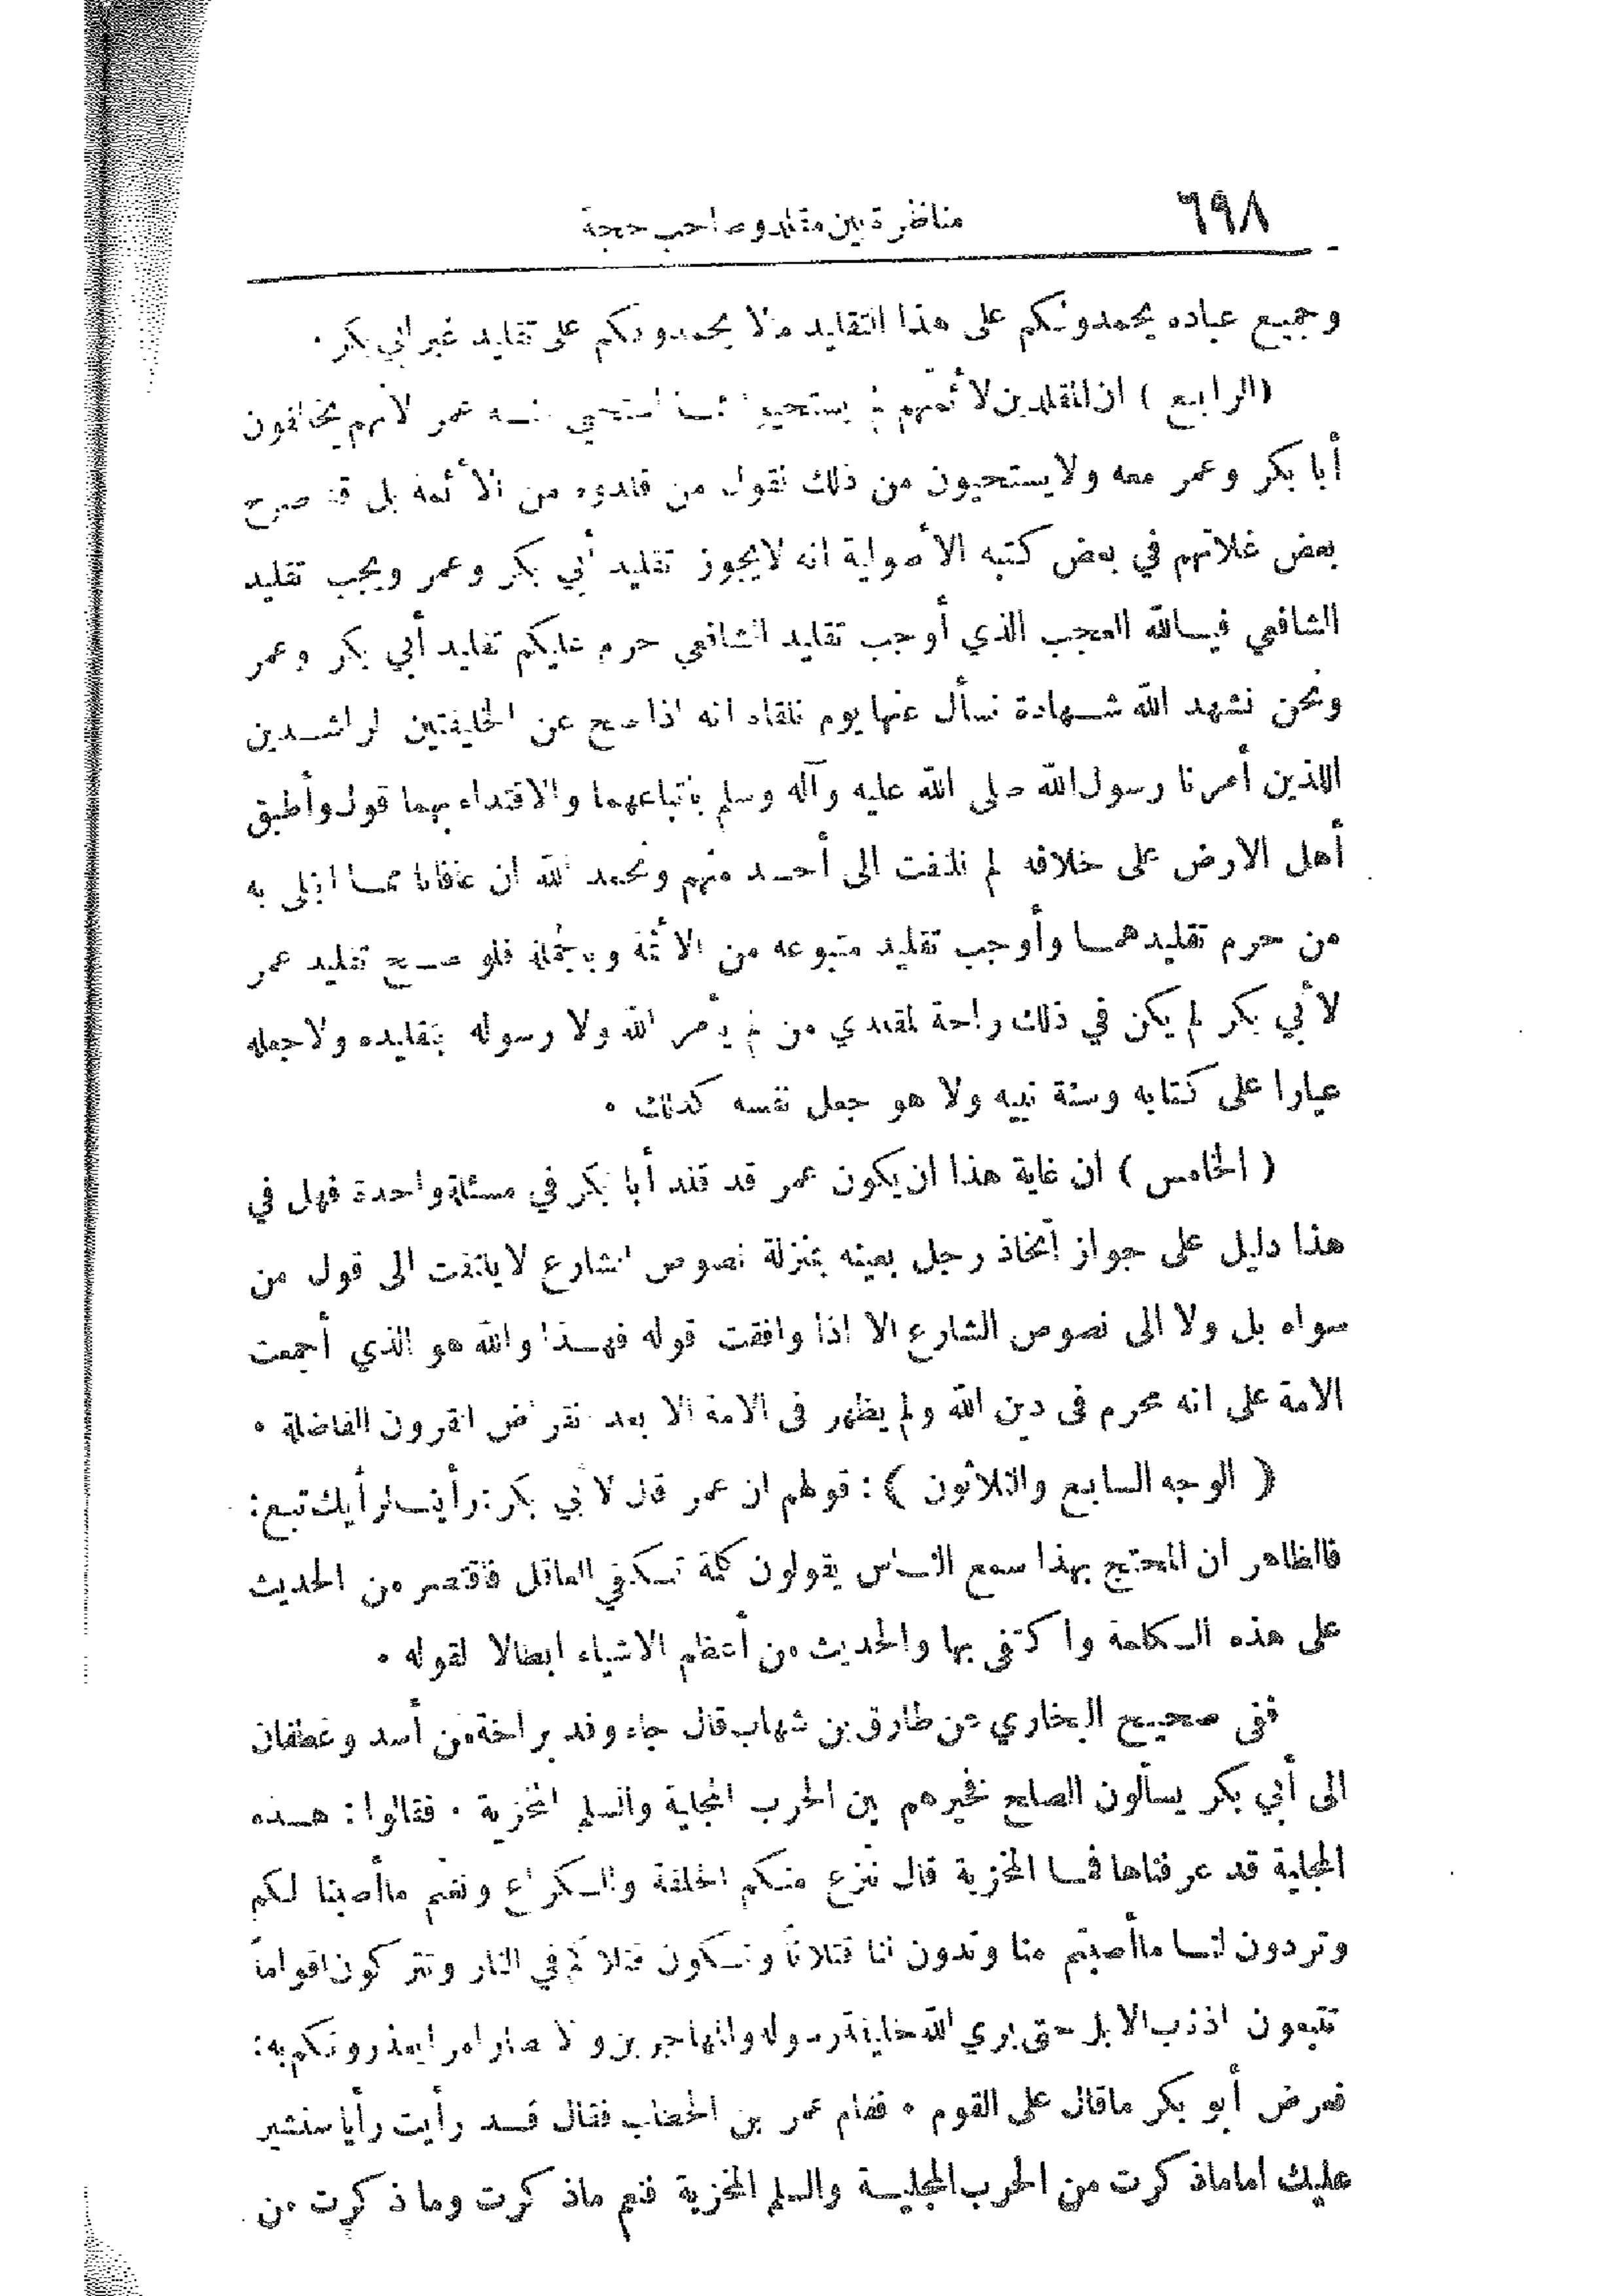 ٦٩٨
مناظرة بين مقلد وصاحب حجة
وجميع عباده يحمدونكم على هذا التقليد مالا يحمدونكم على تقليد غير أبي بكر .
(الرابع) ان المقلدين لأئمتهم لم يستحيوا مما استحيى منه عمر لانهم يخالفون
أبا بكر وعمر معه ولا يستحيون من ذلك لقول من قلدوه من الأئمة بل قد صرح
بعض غلاتهم في بعض كتبه الأصولية انه لا يجوز تقليد أبي بكر وعمر ويجب تقليد
الشافعي فيالله العجب الذي أوجب تقليد الشافعي حرم عليكم تقليد أبي بكر وعمر
ونحن نشهد الله شهادة نسأل عنها يوم نلقاه انه اذا صح عن الخليفتين الراشدين
اللذين أمرنا رسول الله صلى الله عليه وآله وسلم باتباعهما والاقتداء بهما قول وأطبق
أهل الارض على خلافه لم نلتفت الى أحد منهم ونحمد الله ان عافانا مما ابتلى به
من حرم تقليدهما وأوجب تقليد متبوعه من الائمة وبالجملة فلو صح تقليد عمر
لأبي بكر لم يكن في ذلك راحة لمقلدي من لم يأمر الله ولا رسوله بتقليده ولا جعله
عيارا على كتابه وسنة نبيه ولا هو جعل نفسه كذلك .
( الخامس ) ان غاية هذا ان يكون عمر قد قلد أبا بكر في مسئلة واحدة فهل في
هذا دليل على جواز اتخاذ رجل بعينه بمنزلة نصوص الشارع لا يلتفت الى قول من
سواه بل ولا الى نصوص الشارع الا اذا وافقت قوله فهذا والله هو الذي أجمعت
الامة على انه محرم فى دين الله ولم يظهر فى الامة الا بعد انقراض القرون الفاضلة .
( الوجه السابع والثلاثون ) : قولهم ان عمر قال لأبي بكر : رأينا لرأيك تبع :
فالظاهر ان المحتج بهذا سمع الناس يقولون كلمة تكفي العاقل فاقتصر من الحديث
على هذه الكلمة واكتفى بها والحديث من أعظم الاشياء ابطالا لقوله .
ففى صحيح البخاري عن طارق بن شهاب قال جاء وفد بزاخة من أسد وغطفان
الى أبي بكر يسألون الصلح فخيرهم بين الحرب المجلية والسلم المخزية . فقالوا : هذه
المجلية قد عرفناها فما المخزية قال ننزع منكم الحلقة والكراع ونغنم ماأصبنا لكم
وتردون لنا ماأصبتم منا وتدون لنا قتلانا وتكون قتلاكم في النار وتتركون اقواما
تتبعون اذناب الابل حتى يري الله خليفة رسوله والمهاجرين والانصار امرا يعذرونكم به :
فعرض أبو بكر ماقال على القوم . فقام عمر بن الخطاب فقال قد رأيت رأيا سنشير
عليك اما ماذكرت من الحرب المجلية والسلم المخزية فنعم ماذكرت وماذكرت من